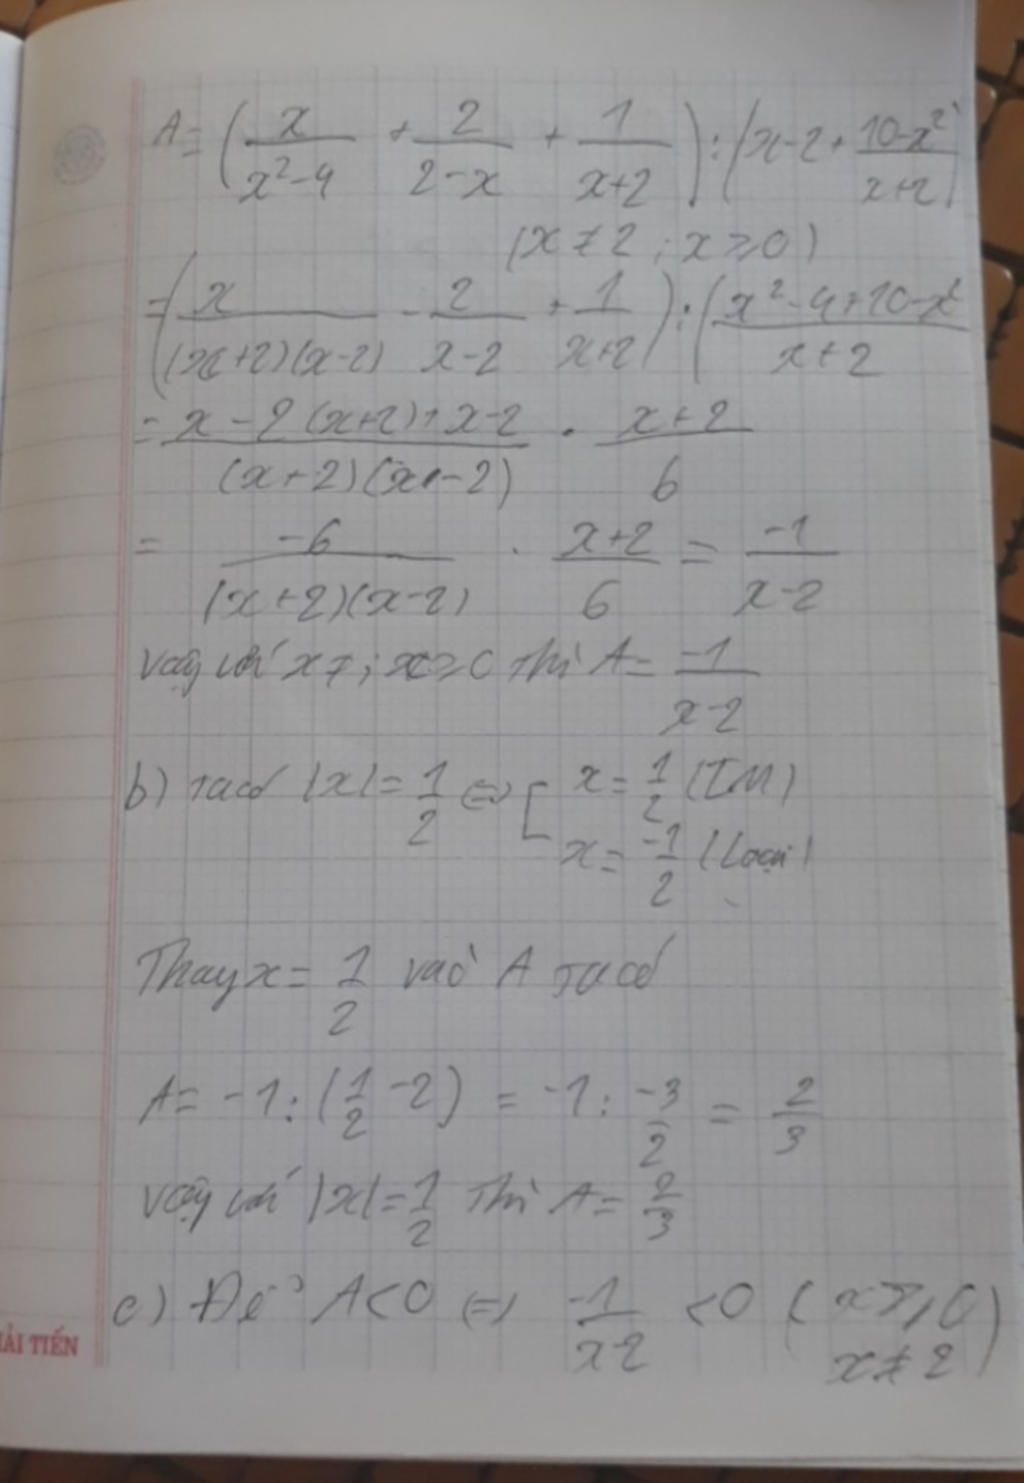 A = (x/(x²-4) + 2/(2-x) + 1/(x+2)) : (x-2 + (10-x²)/(x+2))
(x ≠ 2 ; x ≥ 0)
= (x/((x+2)(x-2)) - 2/(x-2) + 1/(x+2)) : ((x²-4+10-x²)/(x+2)
= (x-2(x+2)+x-2)/((x+2)(x-2)) . (x+2)/6
= -6/((x+2)(x-2)) . (x+2)/6 = -1/(x-2)
Vậy với x ≠ ; x ≥ 0 thì A = -1/(x-2)
b) Ta có |x| = 1/2 <=> [ x = 1/2 (TM)
x = -1/2 (Loại)
Thay x = 1/2 vào A ta có
A = -1 : (1/2 - 2) = -1 : -3/2 = 2/3
Vậy với |x| = 1/2 thì A = 2/3
c) Để A < 0 <=> -1/(x-2) < 0 (x ≥ 0
x ≠ 2)
ẢI TIẾN